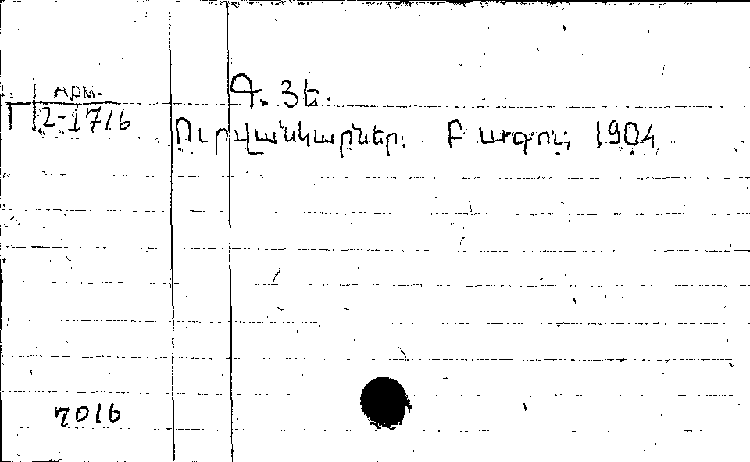 АРМ.
2-1716
Գ. Յե.
Ուրվանկարներ. Բագու, 1904
7016